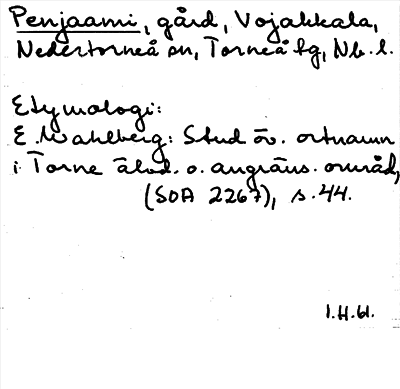 Penjaami, gård, Vojakkala,
Nedertorneå sn, Torneå tg, Nb. l.
Etymologi:
E. Wahlberg: Stud öv. ortnamn
i Torne älvd. o. angräns. område,
(SOA 2267), s. 44.
I.H.H.